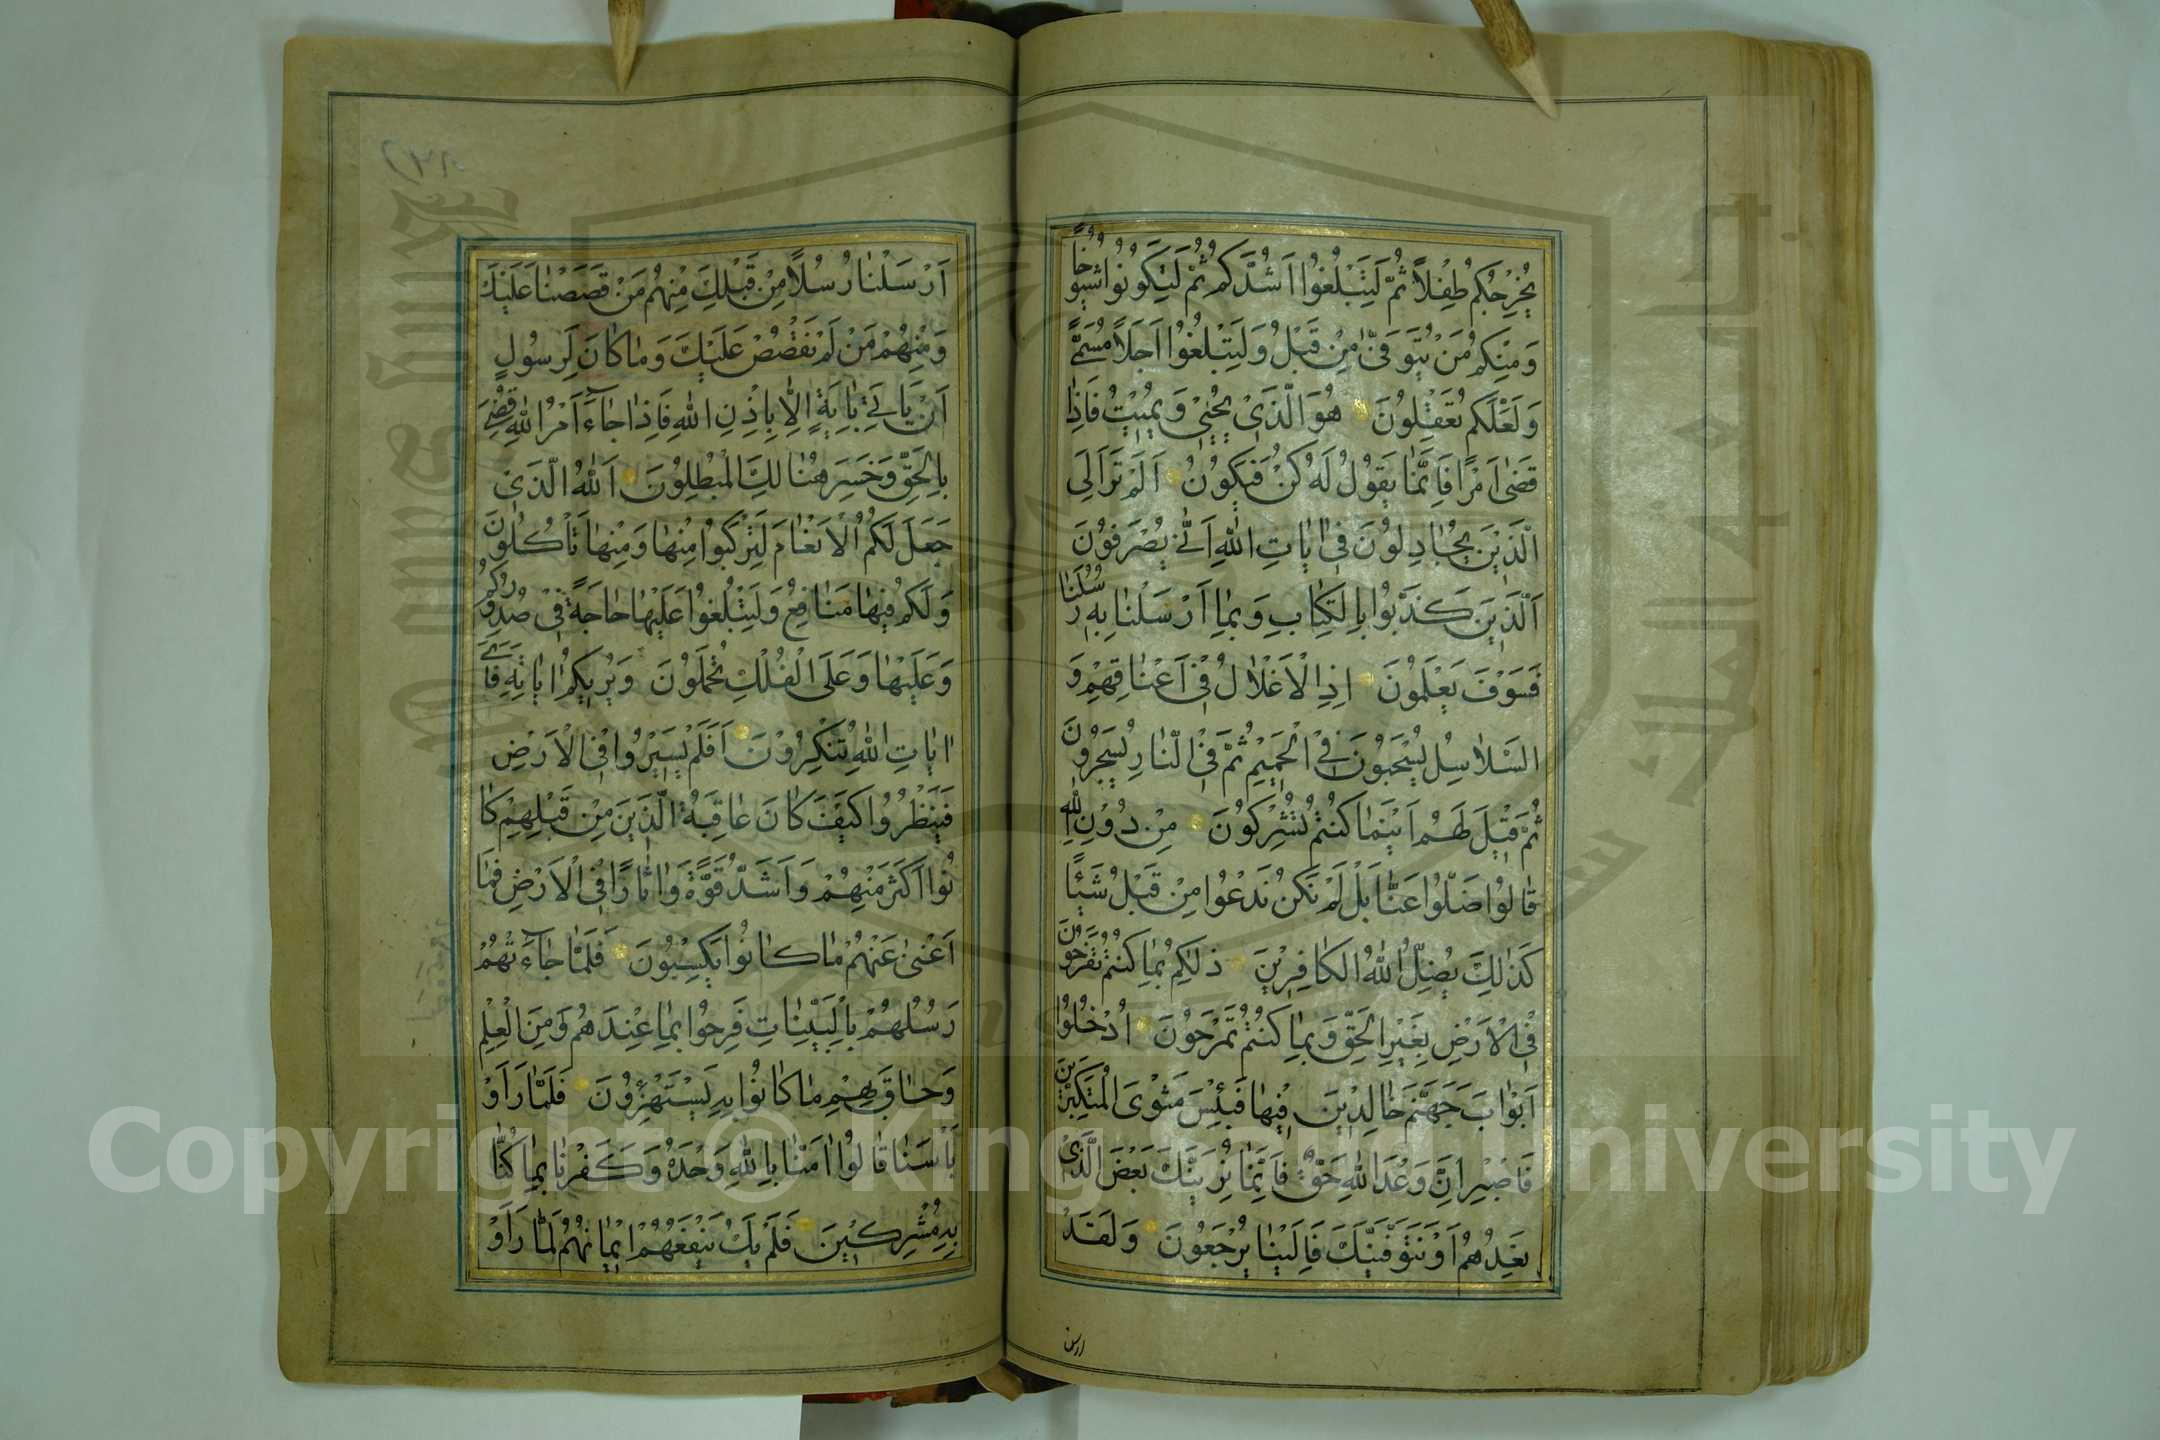 يُخْرِجُكُمْ طِفْلاً ثُمَّ لِتَبْلُغُوا اَشُدَّكُمْ ثُمَّ لِتَكُونُوا شُيُوخًا
وَمِنْكُمْ مَنْ يُتَوَفّٰى مِنْ قَبْلُ وَلِتَبْلُغُوا اَجَلاً مُسَمًّى
وَلَعَلَّكُمْ تَعْقِلُونَ هُوَ الَّذِى يُحْيِى وَيُمِيتُ فَاِذَا
قَضٰى اَمْرًا فَاِنَّمَا يَقُولُ لَهُ كُنْ فَيَكُونُ اَلَمْ تَرَ اِلَى
الَّذِينَ يُجَادِلُونَ فِى اٰيَاتِ اللّٰهِ اَنّٰى يُصْرَفُونَ
اَلَّذِينَ كَذَّبُوا بِالْكِتَابِ وَبِمَا اَرْسَلْنَا بِهِ رُسُلَنَا
فَسَوْفَ يَعْلَمُونَ اِذِ الْاَغْلَالُ فِى اَعْنَاقِهِمْ وَ
السَّلَاسِلُ يُسْحَبُونَ فِى الْحَمِيمِ ثُمَّ فِى النَّارِ يُسْجَرُونَ
ثُمَّ قِيلَ لَهُمْ اَيْنَمَا كُنْتُمْ تُشْرِكُونَ مِنْ دُونِ اللّٰهِ
قَالُوا ضَلُّوا عَنَّا بَلْ لَمْ نَكُنْ نَدْعُوا مِنْ قَبْلُ شَيْئًا
كَذٰلِكَ يُضِلُّ اللّٰهُ الْكَافِرِينَ ذٰلِكُمْ بِمَا كُنْتُمْ تَفْرَحُونَ
فِى الْاَرْضِ بِغَيْرِ الْحَقِّ وَبِمَا كُنْتُمْ تَمْرَحُونَ اُدْخُلُوا
اَبْوَابَ جَهَنَّمَ خَالِدِينَ فِيهَا فَبِئْسَ مَثْوَى الْمُتَكَبِّرِينَ
فَاصْبِرْ اِنَّ وَعْدَ اللّٰهِ حَقٌّ فَاِمَّا نُرِيَنَّكَ بَعْضَ الَّذِى
نَعِدُهُمْ اَوْ نَتَوَفَّيَنَّكَ فَاِلَيْنَا يُرْجَعُونَ وَلَقَدْ
ارسلن
اَرْسَلْنَا رُسُلاً مِنْ قَبْلِكَ مِنْهُمْ مَنْ قَصَصْنَا عَلَيْكَ
وَمِنْهُمْ مَنْ لَمْ نَقْصُصْ عَلَيْكَ وَمَا كَانَ لِرَسُولٍ
اَنْ يَاْتِىَ بِاٰيَةٍ اِلَّا بِاِذْنِ اللّٰهِ فَاِذَا جَاۤءَ اَمْرُ اللّٰهِ قُضِىَ
بِالْحَقِّ وَخَسِرَ هُنَالِكَ الْمُبْطِلُونَ اَللّٰهُ الَّذِى
جَعَلَ لَكُمُ الْاَنْعَامَ لِتَرْكَبُوا مِنْهَا وَمِنْهَا تَاْكُلُونَ
وَلَكُمْ فِيهَا مَنَافِعُ وَلِتَبْلُغُوا عَلَيْهَا حَاجَةً فِى صُدُورِكُمْ
وَعَلَيْهَا وَعَلَى الْفُلْكِ تُحْمَلُونَ وَيُرِيكُمْ اٰيَاتِهِ فَاَىَّ
اٰيَاتِ اللّٰهِ تُنْكِرُونَ اَفَلَمْ يَسِيرُوا فِى الْاَرْضِ
فَيَنْظُرُوا كَيْفَ كَانَ عَاقِبَةُ الَّذِينَ مِنْ قَبْلِهِمْ كَا
نُوا اَكْثَرَ مِنْهُمْ وَاَشَدَّ قُوَّةً وَاٰثَارًا فِى الْاَرْضِ فَمَا
اَغْنٰى عَنْهُمْ مَا كَانُوا يَكْسِبُونَ فَلَمَّا جَاۤءَتْهُمْ
رُسُلُهُمْ بِالْبَيِّنَاتِ فَرِحُوا بِمَا عِنْدَهُمْ مِنَ الْعِلْمِ
وَحَاقَ بِهِمْ مَا كَانُوا بِهِ يَسْتَهْزِؤُنَ فَلَمَّا رَاَوْ
بَاْسَنَا قَالُوا اٰمَنَّا بِاللّٰهِ وَحْدَهُ وَكَفَرْنَا بِمَا كُنَّا
بِهِ مُشْرِكِينَ فَلَمْ يَكُ يَنْفَعُهُمْ اِيمَانُهُمْ لَمَّا رَاَوْ
Copyright © King Saud University